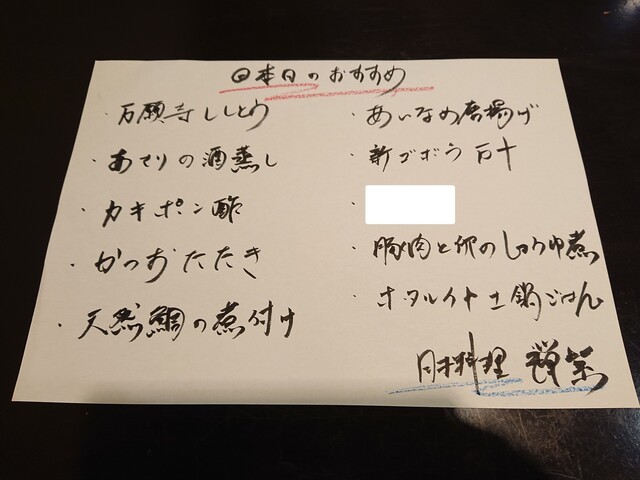 日本日のおすすめ
・万願寺ししとう
・あさりの酒蒸し
・カキポン酢
・かつおたたき
・天然鯛の煮付け
・あいなめ唐揚げ
・新ゴボウ万十
・
・豚肉と卯のしょうゆ煮
・ホタルイカ土鍋ごはん
日本料理